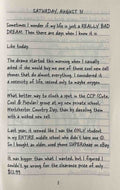 SATURDAY, AUGUST 31
Sometimes I wonder if my life is just a REALLY BAD
DREAM. Then there are days when I know it is.
Like today.
The drama started this morning when I casually
asked if she would buy me one of those cool new cell
phones that do almost everything. I considered it
a necessity of life, second only to maybe oxygen.
What better way to clinch a spot in the CCP (Cute,
Cool & Popular) group at my new private school,
Westchester Country Day, than by dazzling them
with a wicked new cell.
Last year, it seemed like I was the ONLY student
in my ENTIRE middle school who didn't have one.
So I bought an older, used phone SUPERcheap on eBay.
It was bigger than what I wanted, but I figured I
couldn't go wrong for the clearance price of only
$12.99.